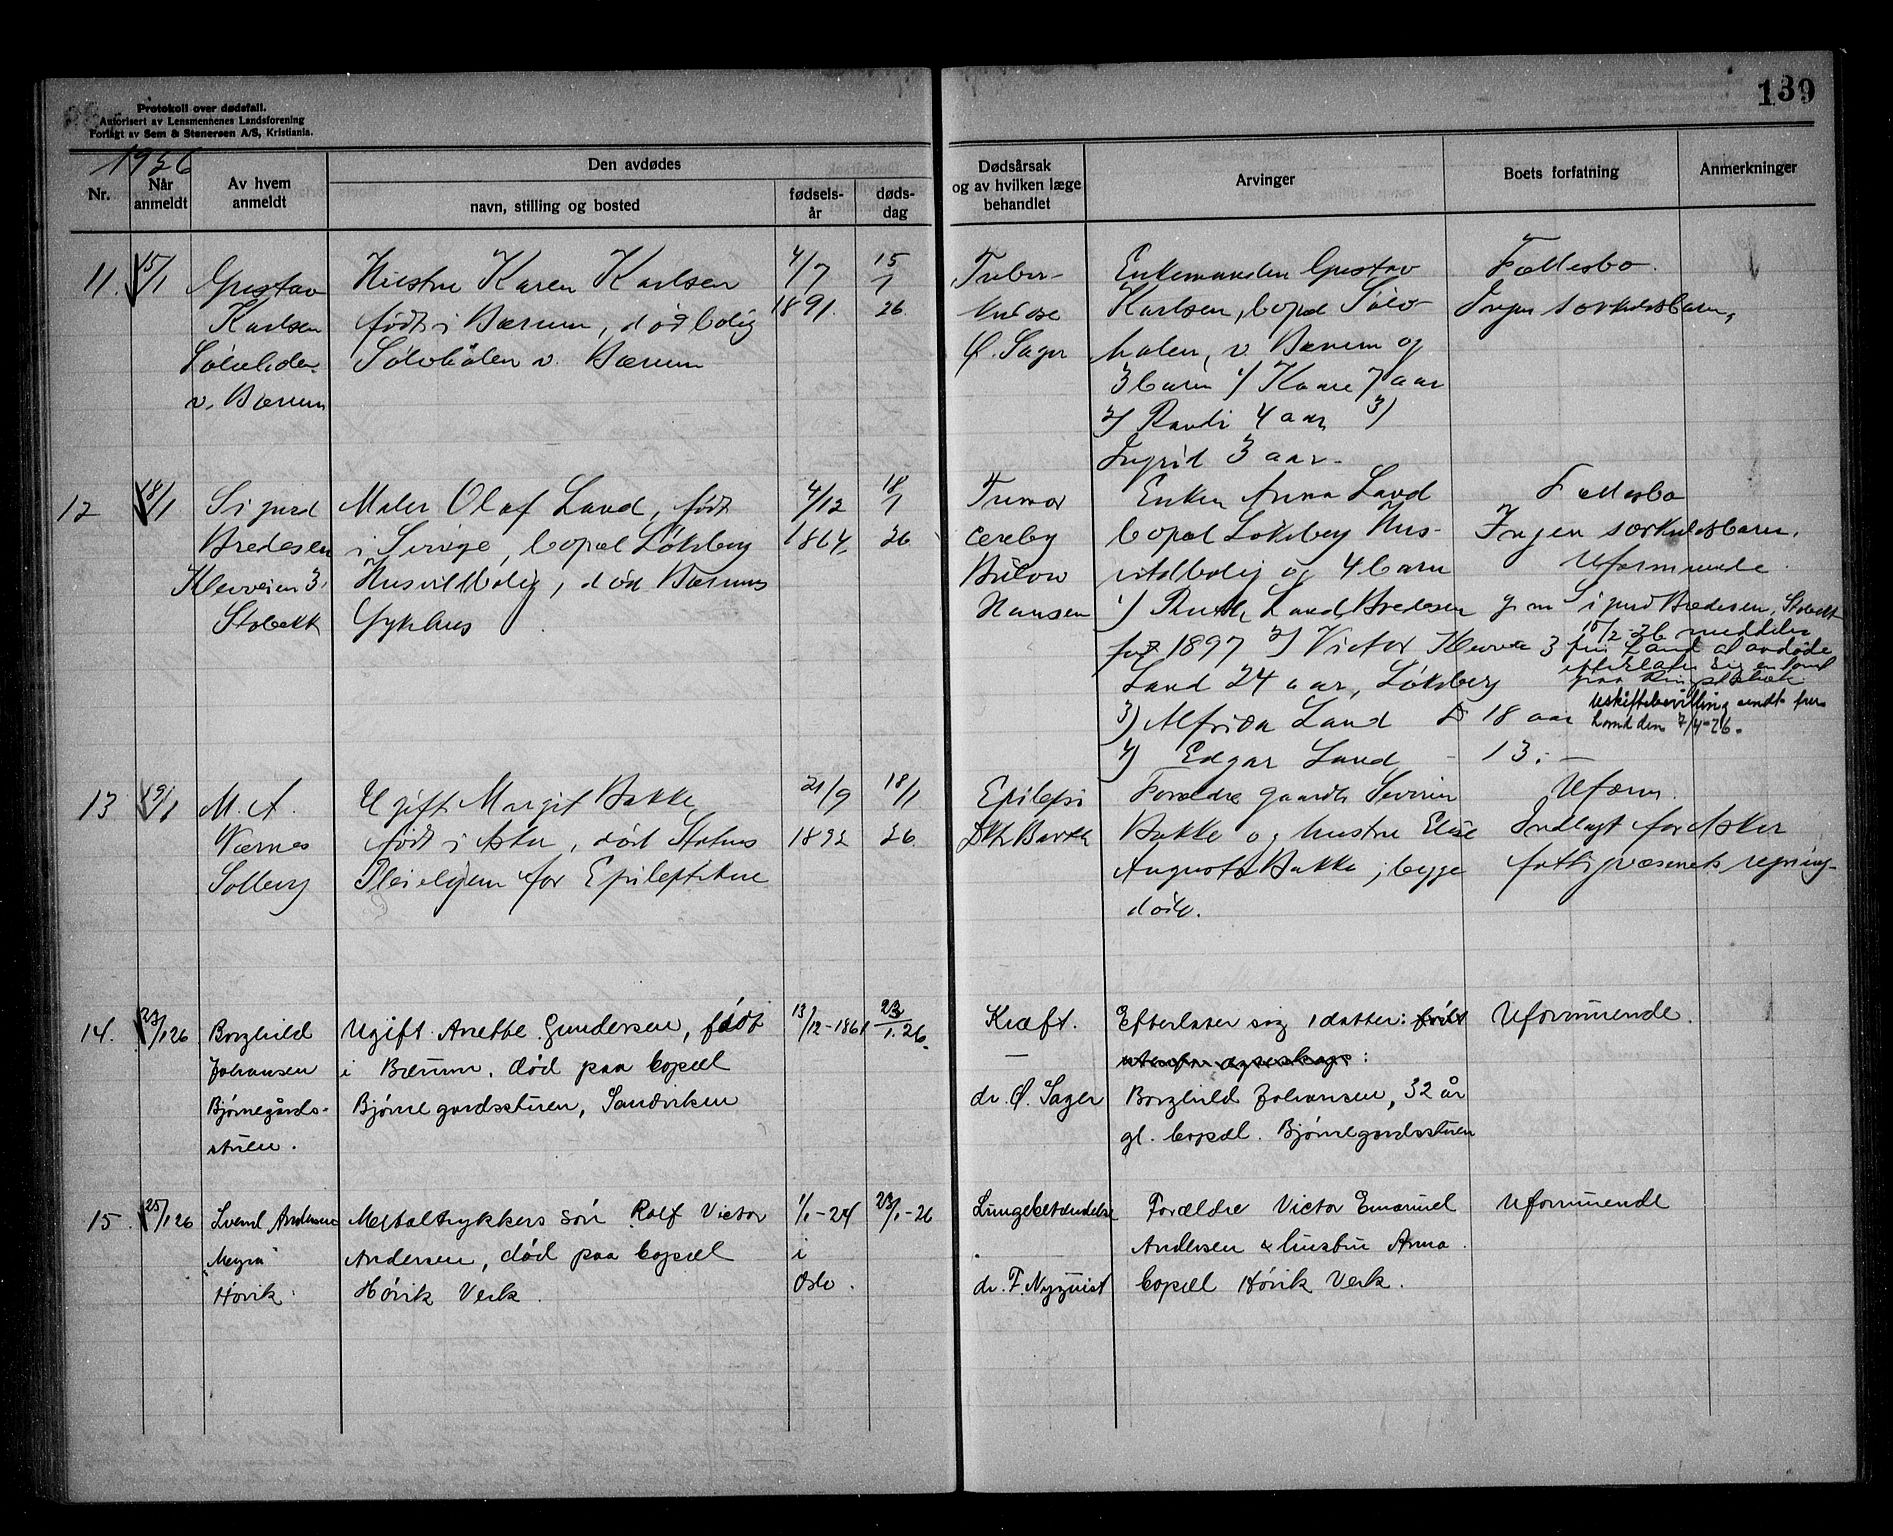 Protokoll over dødsfall.
Autorisert av Lensmennenes Landsforening
Forlagt av Sem & Stenersen A/S, Kristiania.
139
1926
Nr.
Når anmeldt
Av hvem anmeldt
Den avdødes
navn, stilling og bosted
fødsels-år
døds-dag
Dødsårsak og av hvilken læge behandlet
Arvinger
Boets forfatning
Anmerkninger
11.
15/1
Gustav
Karlsen
v. Bærum
Hustru Karen Karlsen
født i Bærum, død bolig
v. Bærum
4/7
1891.
15/1
26
Tuber-
kulose
Ø. Sager
Enkemanden Gustav
Karlsen, bopæl Sølv-
v. Bærum og
3 barn 1) Kaare 7 aar
2) Randi 4 aar 3)
Ingrid 3 aar.
Fællesbo.
Ingen særkuldsbarn.
12
18/1
Sigurd
Bredesen
Kleivveien 3,
Stabekk
Maler Olaf Land, født
i Sverige, bopæl Løkeberg
Husvildbolig, død Bærums
Sykehus
4/12
1864.
18/1
26
Tumor
cereby
Bülow
Hansen
Enken Anna Land
bopæl Løkeberg Hus-
vildbolig og 4 barn
1) Ruth Land Bredesen g. m. Sigurd Bredesen, Stabekk
født 1897 2) Victor
Land 24 aar, Løkeberg
3) Alfrida Land 18 aar
4) Edgar Land - 13. -
Fællesbo
Ingen særkuldsbarn.
Uformuende
15/2-26 meddeler
fru Land at avdøde
efterlater sig en tomt
paa Ringstabæk.
Uskiftebevilling sendt fru
Land den 7/4-26.
13
19/1
M. A.
Værnes
Solberg
Ugift Margit Bakke
født i Asker, død Statens
Pleiehjem for Epileptikere
21/9
1892
18/1
26
Epilepsi
Dktr Barth
Forældre gaardb. Severin
Bakke og hustru Elise
Augusta Bakke, begge
døde.
Uform.
Indlagt for Asker
fattigvæsenets regning.
14.
23/1 26
Borghild
Johansen
Bjørnegårds-
stuen.
Ugift Anette Gundersen, født
i Bærum, død paa bopæl
Bjørnegardsstuen, Sandviken
13/12-1861
23/1.26.
Kræft.
—
dr. Ø. Sager
Efterlater sig 1 datter: født
utenfor egteskap:
Borghild Johansen, 32 år
gl. bopæl. Bjørnegardsstuen
Uformuende.
15.
25/1 26
Svend Andersen
"Myra"
Høvik.
Metaltrykkers søn Rolf Victor
Andersen, død paa bopæl
Høvik Verk.
1/1-24
i
Oslo.
23/1-26
Lungebetændelse
dr. F. Nyquist
Forældre Victor Emanuel
Andersen & hustru Anna
bopæl Høvik Verk.
Uformuende